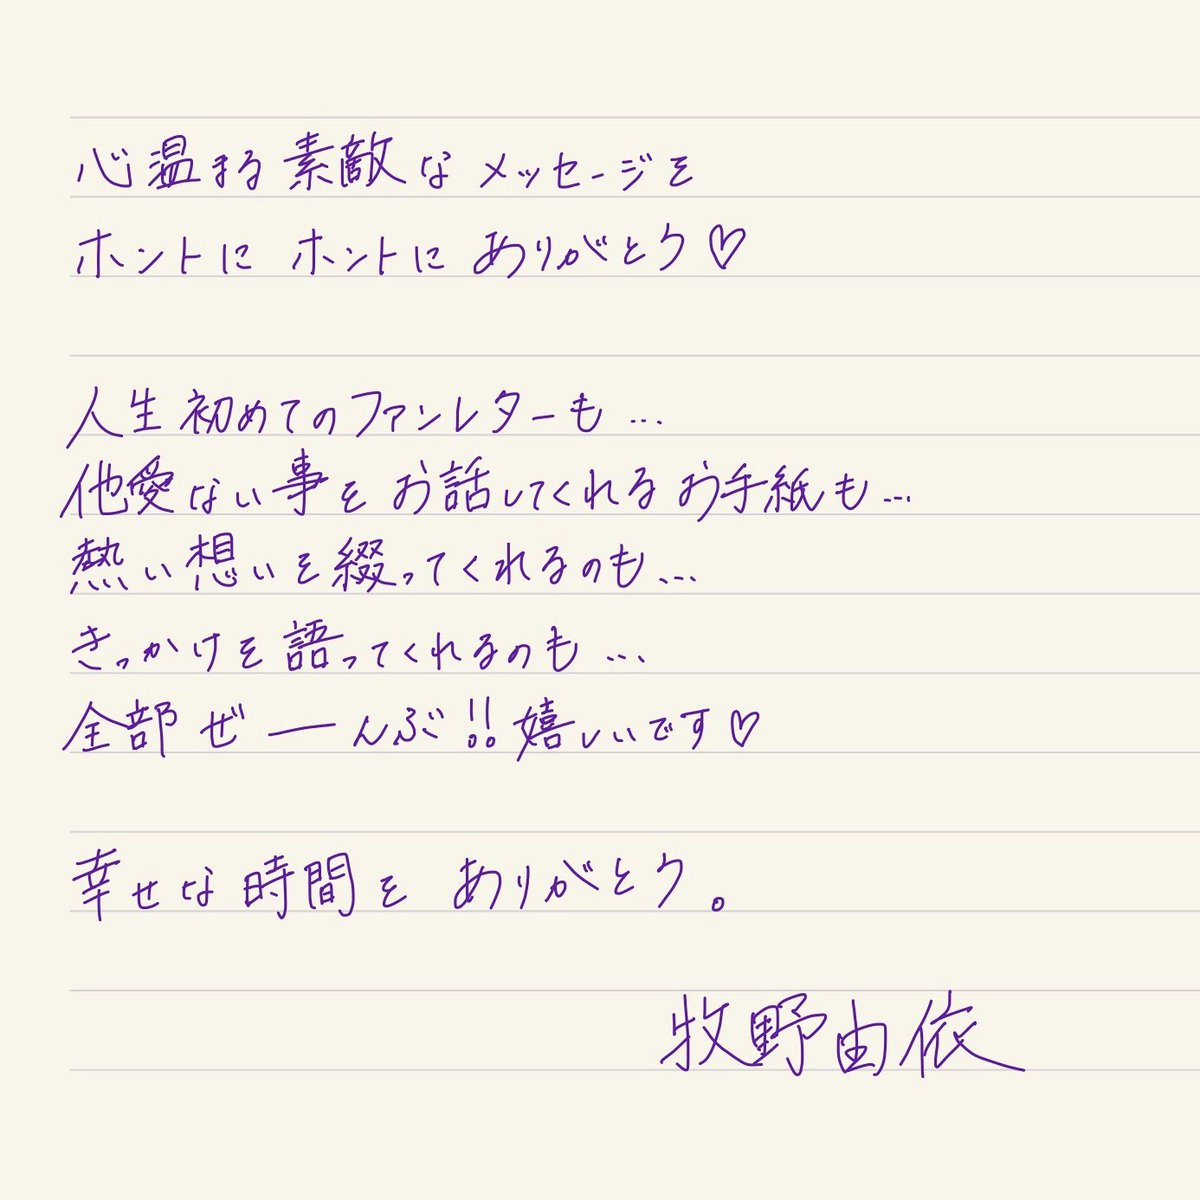 心温まる素敵なメッセージを
ホントに ホントに ありがとう♡
人生初めてのファンレターも…
他愛ない事を お話してくれる お手紙も…
熱い想いを綴ってくれるのも…
きっかけを語ってくれるのも…
全部 ぜーんぶ!! 嬉しいです♡
幸せな時間を ありがとう。
牧野由依